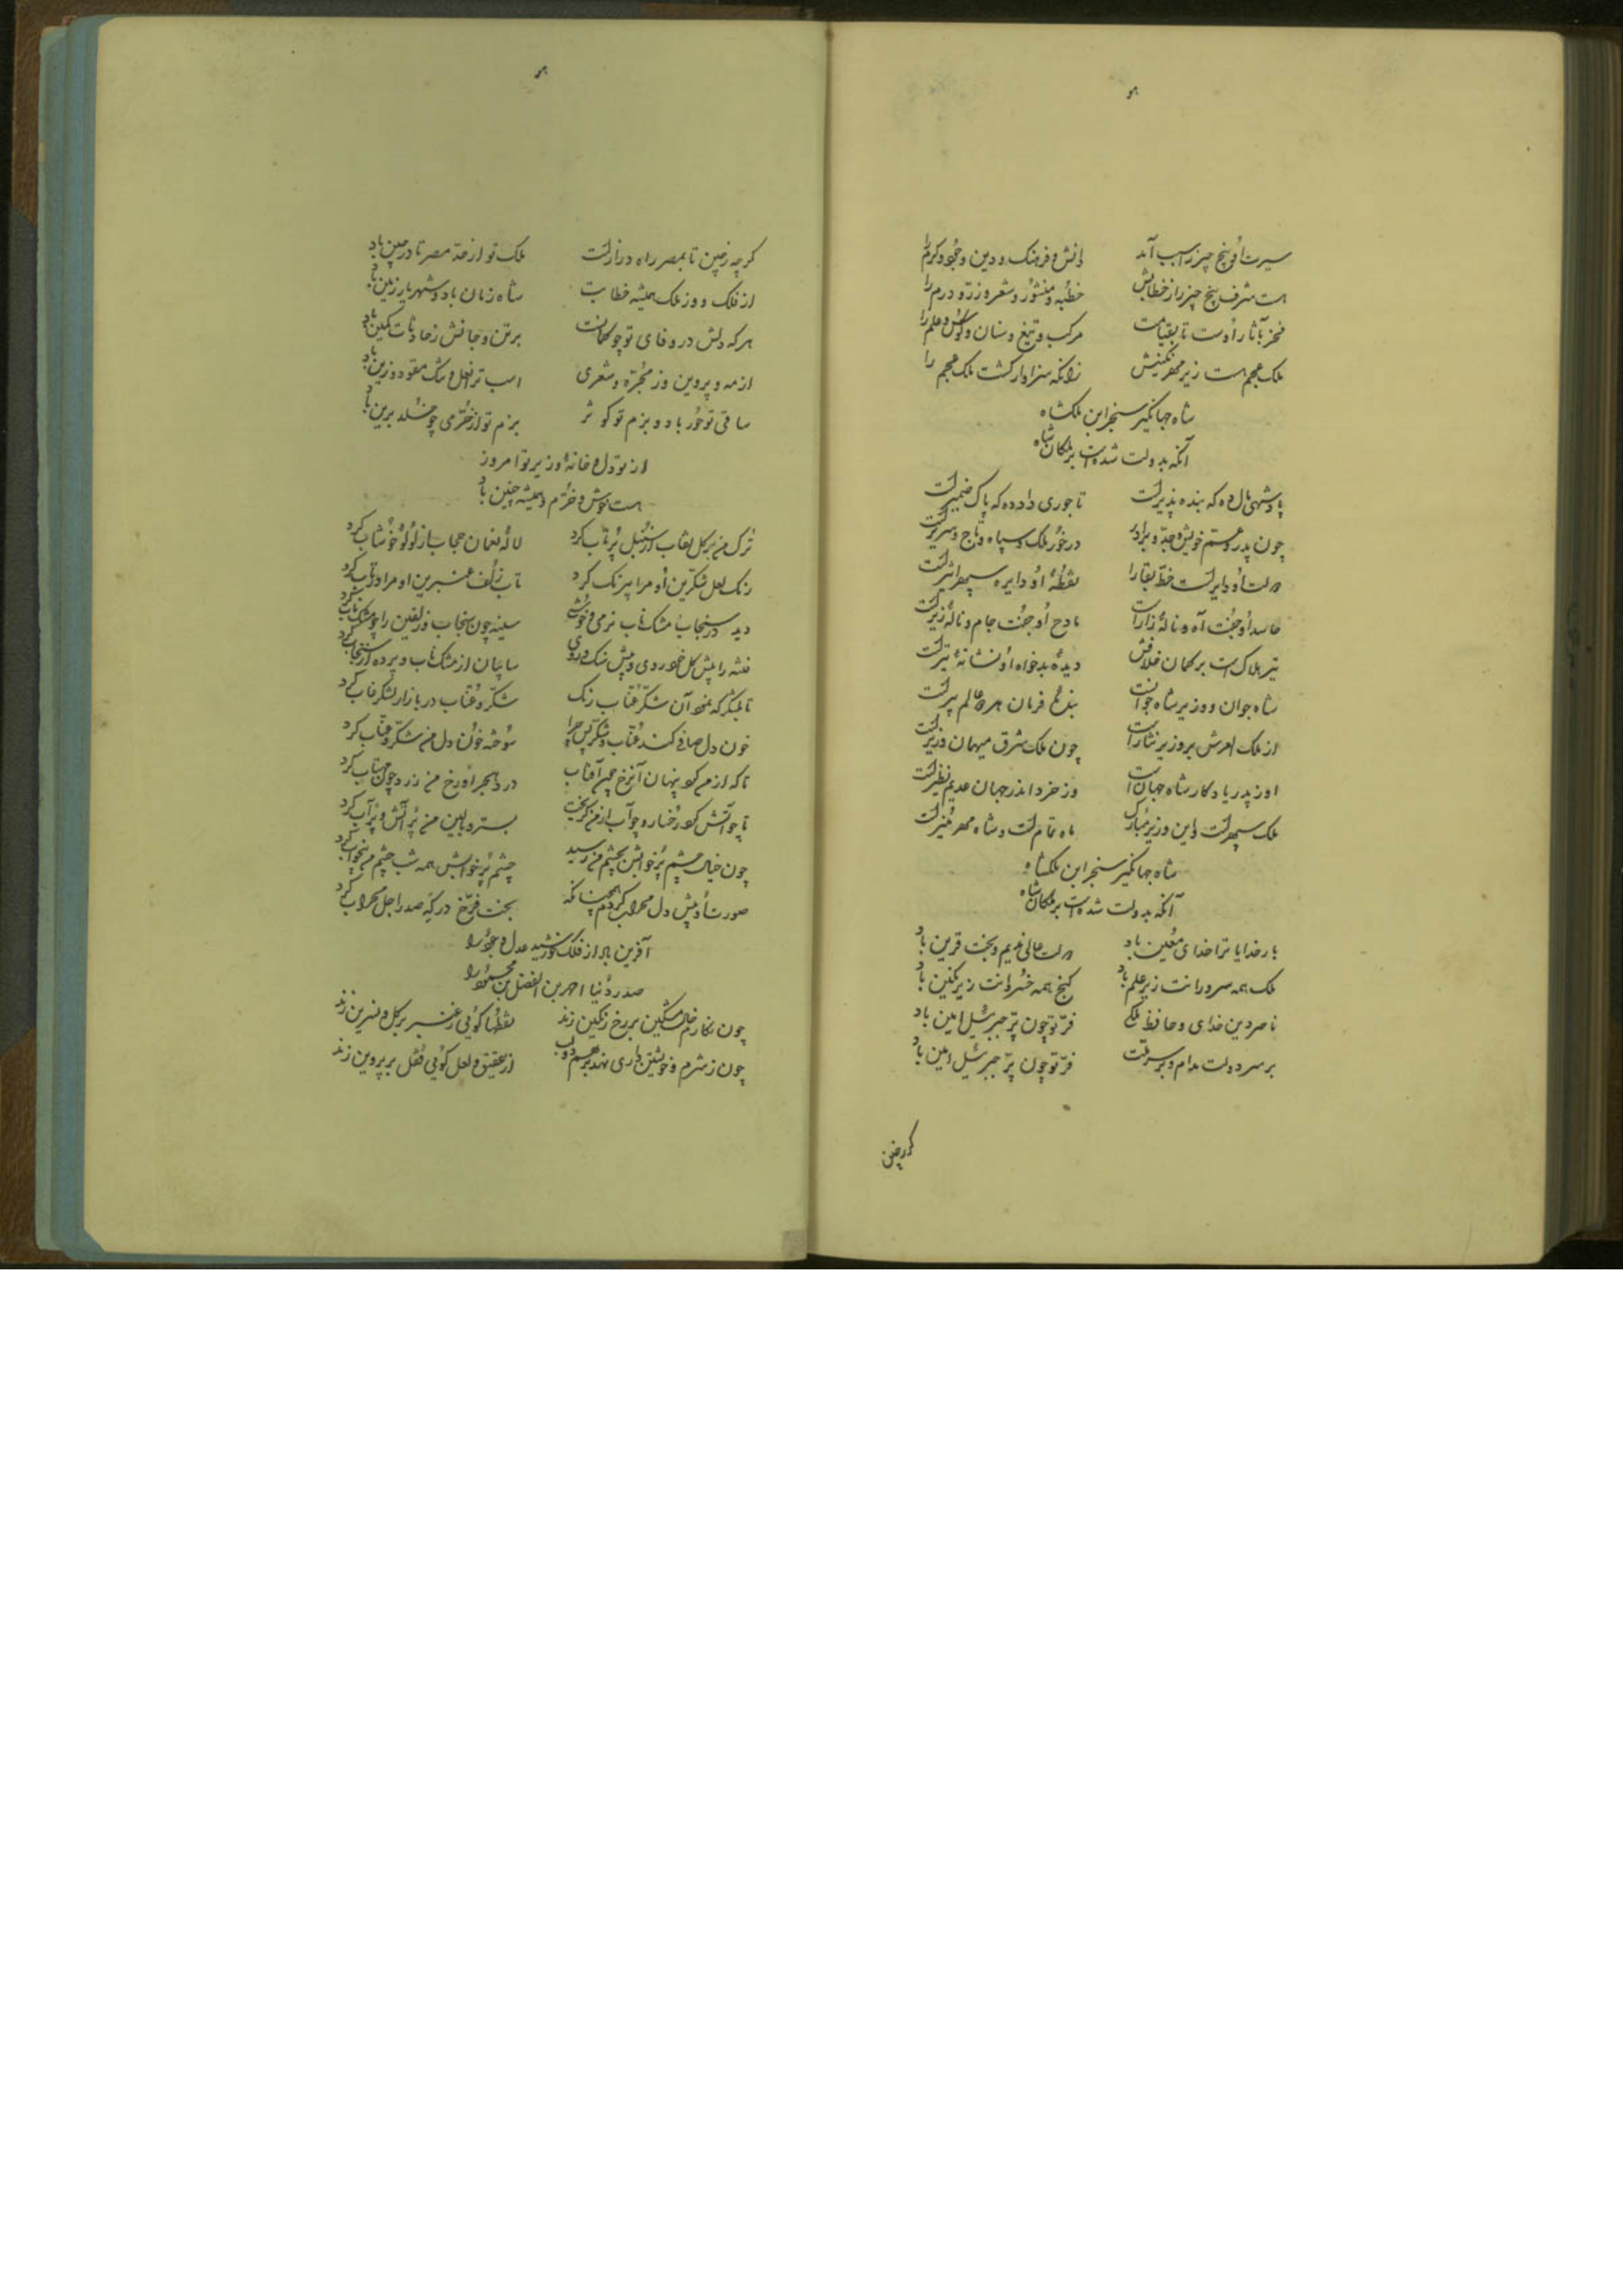 سیرت او پنج چیز را سبب آمد دانش و فرهنک و دین و جود و کرم را
هست شرف پنج چیز را ز خطابش خطبه و منشور و شعر و زر و درم را
فخر بآثار اوست تا بقیامت مرکب و تیغ و سنان و کوس و علم را
ملک عجم هست زیر مهر نکینش زانکه سزاوار کشت ملک عجم را
شاه جهانکیر سنجر ابن ملکشاه
آنکه بدولت شده است بر ملکان شاه
پادشهی مال ده که بنده پذیرست تاجوری داد ده که پاک ضمیرست
چون پدر و عم خویش و جد و برادر در خور ملک و سپاه و تاج و سریرست
دولت او دایرست خط بقا را نقطهٔ او دایره سپهر اثیرست
حاسد او جفت آه و نالهٔ زارست مادح او جفت جام و نالهٔ زیرست
تیر هلاک است بر کمان خلافش دیدهٔ بدخواه او نشانهٔ تیرست
شاه جوان و وزیر شاه جوانست بندهٔ فرمان هر دو عالم پیرست
از ملک امرش بروزیر نثارست چون ملک شرق میهمان وزیرست
او ز پدر یادکار شاه جهان است وز خرد اندر جهان عدیم نظیرست
ملک سپهرست و این وزیر مبارک ماه تمام است و شاه مهر منیرست
شاه جهانکیر سنجر ابن ملکشاه
آنکه بدولت شده است بر ملکان شاه
بار خدایا ترا خدای معین باد دولت عالی ندیم و بخت قرین باد
ملک همه سرورانت زیر علم باد کنج همه خسروانت زیر نکین باد
ناصر دین خدای و حافظ ملکی فر تو چون پر جبرئیل امین باد
بر سر دولت مدام و بر سر ملت فر تو چون پر جبرئیل امین باد
کرچه ز چین
کرچه ز چین تا بمصر راه درازست ملک تو از حد مصر تا در چین باد
از فلک و وز ملک همیشه خطابت شاه زمان باد و شهریار زمین باد
هر که دلش در وفای تو چو کمانست بر تن و جانش ز حادثات کمین باد
از مه و پروین وز مجره و شعری اسب ترا نعل و تنک و مقود و زین باد
ساقی تو حور باد و بزم تو کوثر بزم تو از خرمی چو خلد برین باد
از تو دل و خانهٔ وزیر تو امروز
هست خوش و خرم و همیشه چنین باد
ترک من بر کل نقاب از سنبل پرتاب کرد لالهٔ نعمان حجاب از لؤلؤ خوشاب کرد
رنک لعل شکرین او مرا بیرنک کرد تاب زلف عنبرین او مرا در تاب کرد
دید در سنجاب و مشک ناب نرمی و خوشی سینه چون سنجاب و زلفین را چو مشک ناب کرد
فتنه را پیش کل خودروی و پیش سنک روی سایبان از مشک ناب و پرده از سنجاب کرد
تا بلشکرکه نمود آن شکر عناب رنک شکر و عناب در بازار لشکر ناب کرد
خون دل صافی کند عناب و شکر پس چرا سوخته خون دل من شکر و عناب کرد
تا که از من کرد پنهان آنرخ چون آفتاب درد هجر او رخ من زرد چون مهتاب کرد
تا چو آتش کرد رخسار و چو آب از من کریخت بستر و بالین من پر آتش و پر آب کرد
چون خیال چشم پر خوابش بچشم من رسید چشم پر خوابش همه شب چشم من بیخواب کرد
صورت او پیش دل محراب کردم همچنانکه بخت فرخ درکه صدر اجل محراب کرد
آفرین باد از فلک خورشید عدل و جود را
صدر دنیا احمد بن الفضل بن محمود را
چون نکارم خال مشکین بر رخ رنکین زند نقطها کوئی ز عنبر بر کل و نسرین زند
چون ز شرم و خویشتن داری نهد بر هم دو لب از عقیق و لعل کوئی قفل بر پروین زند